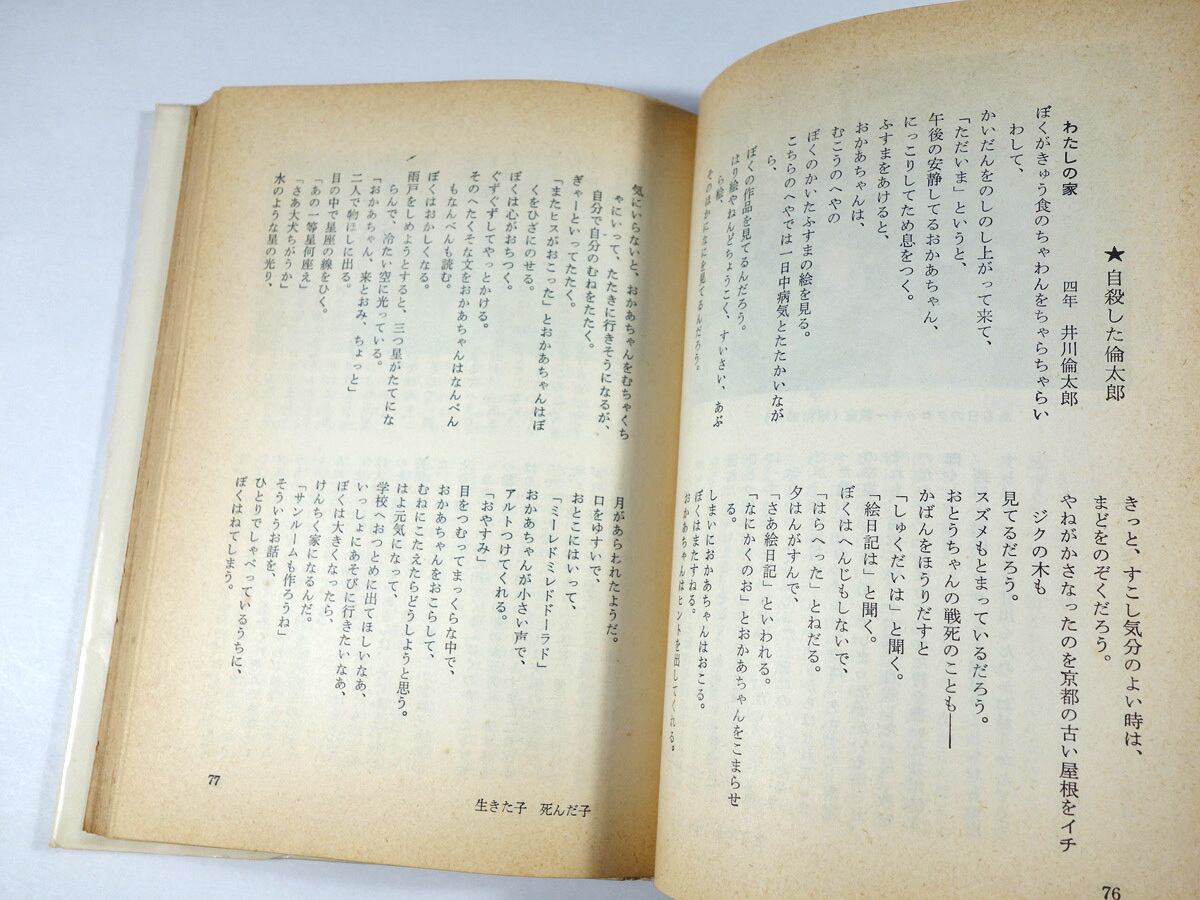 ★自殺した倫太郎
わたしの家　四年　井川倫太郎
ぼくがきゅう食のちゃわんをちゃらちゃらい
わして、
かいだんをのしのし上がって来て、
「ただいま」というと、
午後の安静してるおかあちゃん、
にっこりしてため息をつく。
ふすまをあけると、
おかあちゃんは、
むこうのへやの
ぼくのかいたふすまの絵を見る。
こちらのへやでは一日中病気とたたかいなが
ら、
ぼくの作品を見てるんだろう。
はり絵やねんどちょうこく、すいさい、あぶ
ら絵、
そのほかになにを見てるんだろう。
きっと、すこし気分のよい時は、
まどをのぞくだろう。
やねがかさなったのを京都の古い屋根をイチ
ジクの木も
見てるだろう。
スズメもとまっているだろう。
おとうちゃんの戦死のことも――
かばんをほうりだすと
「しゅくだいは」と聞く。
「絵日記は」と聞く。
ぼくはへんじもしないで、
「はらへった」とねだる。
夕はんがすんで、
「さあ絵日記」といわれる。
「なにかくのお」とおかあちゃんをこまらせ
る。
しまいにおかあちゃんはおこる。
ぼくはまたすねる。
おかあちゃんはヒントを出してくれる。
76
気にいらないと、おかあちゃんをむちゃくち
ゃにいって、たたきに行きそうになるが、
自分で自分のむねをたたく。
ぎゃーといってたたく。
「またヒスがおこった」とおかあちゃんはぼ
くをひざにのせる。
ぼくは心がおちつく。
ぐずぐずしてやっとかける。
そのへたくそな文をおかあちゃんはなんべん
もなんべんも読む。
ぼくはおかしくなる。
雨戸をしめようとすると、三つ星がたてにな
らんで、冷たい空に光っている。
「おかあちゃん、来とおみ、ちょっと」
二人で物ほしに出る。
目の中で星座の線をひく。
「あの一等星何座え」
「さあ大犬ちがうか」
水のような星の光り、
月があらわれたようだ。
口をゆすいで、
おとこにはいって、
「ミーレドミレドドーラド」
おかあちゃんが小さい声で、
アルトつけてくれる。
「おやすみ」
目をつむってまっくらな中で、
おかあちゃんをおこらして、
むねにこたえたらどうしようと思う。
はよ元気になって、
学校へおつとめに出てほしいなあ、
いっしょにあそびに行きたいなあ、
ぼくは大きくなったら、
けんちく家になるんだ。
「サンルームも作ろうね」
そういうお話を、
ひとりでしゃべっているうちに、
ぼくはねてしまう。
77
生きた子　死んだ子